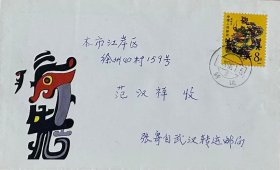 本市江岸区
徐州四村159号
范汉祥 收
张寄自武汉转运邮局
8